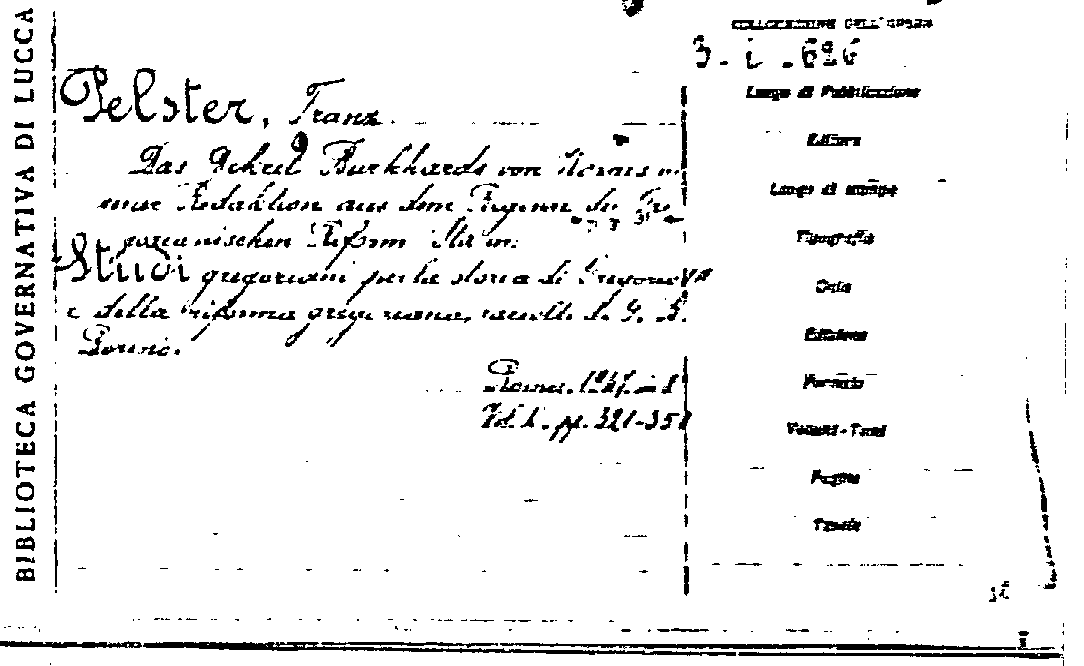 BIBLIOTECA GOVERNATIVA DI LUCCA
COLLOCAZIONE DELL'OPERA
3. i. 626
Pelster, Franz
Das Dekret Burkhards von Worms in
einer Redaktion aus dem Beginn der Gre
gorianischen Reform
Studi gregoriani per la storia di Gregorio VII
e della riforma gregoriana, raccolti da G. B.
Borino.
Roma. 1947. in 8°
Vol. I. pp. 321-351
Luogo di Pubblicazione
Editore
Luogo di stampa
Tipografia
Data
Edizione
Formato
Volumi-Tomi
Pagine
Tavole